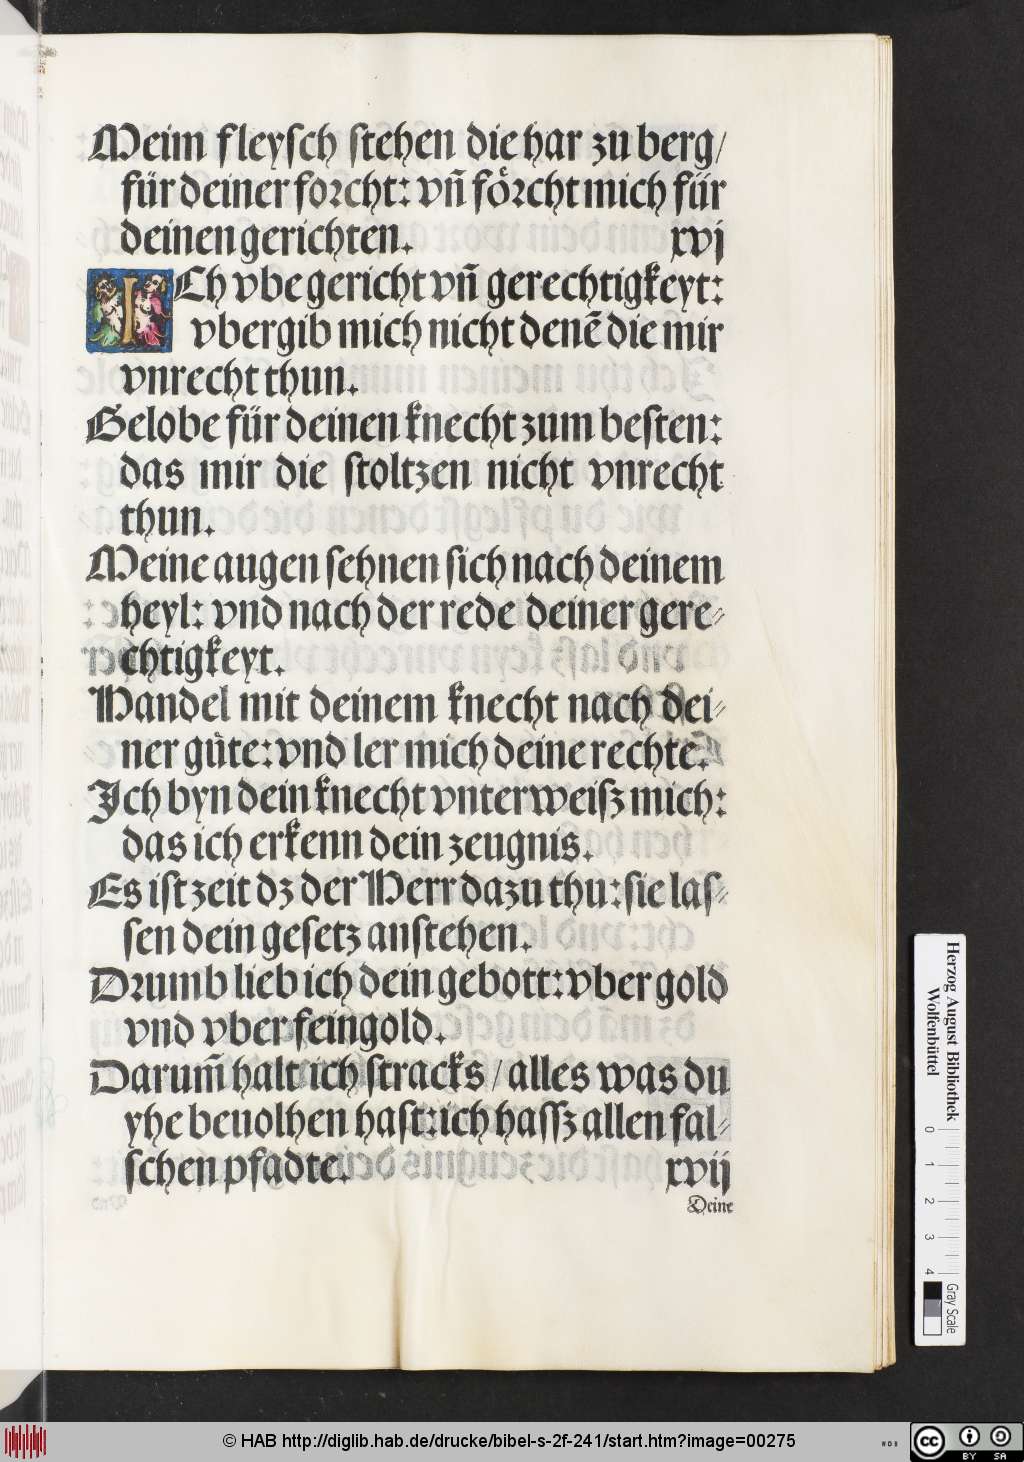 Meim fleysch stehen die har zu berg/
für deiner forcht: vñ foͤrcht mich für
deinen gerichten. xvj
ICh vbe gericht vñ gerechtigkeyt:
vbergib mich nicht denē die mir
vnrecht thun.
Gelobe für deinen knecht zum besten:
das mir die stoltzen nicht vnrecht
thun.
Meine augen sehnen sich nach deinem
heyl: vnd nach der rede deiner gere⸗
chtigkeyt.
Handel mit deinem knecht nach dei⸗
ner gůte: vnd ler mich deine rechte.
Ich byn dein knecht vnterweisz mich:
das ich erkenn dein zeugnis.
Es ist zeit dz der Herr dazu thu: sie las⸗
sen dein gesetz anstehen.
Drumb lieb ich dein gebott: vber gold
vnd vber feingold.
Darum̄ halt ich stracks / alles was du
yhe beuolhen hast: ich hassz allen fal⸗
schen pfadte. xvij
Deine
Herzog August Bibliothek
Wolfenbüttel
0 1 2 3 4
Gray Scale
© HAB http://diglib.hab.de/drucke/bibel-s-2f-241/start.htm?image=00275
WDB
cc BY SA